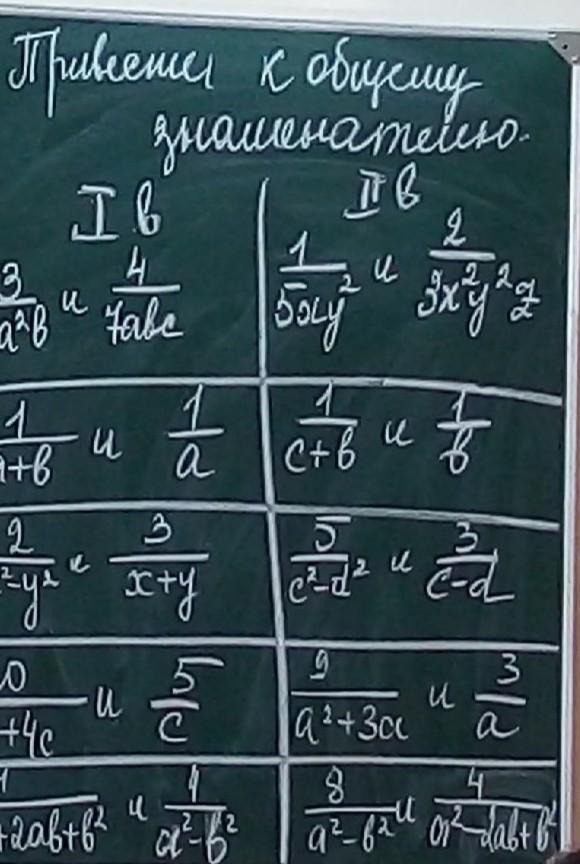 Привести к общему
знаменателю.
I в II в
3/a²в и 4/7abc 1/5xy² и 2/3x²y²z
1/+в и 1/a 1/c+в и 1/в
2/²-y² и 3/x+y 5/c²-d² и 3/c-d
0/+4c и 5/c 9/a²+3a и 3/a
1/+2ab+b² и 1/a²-b² 8/a²-b² и 4/a²-2ab+b²